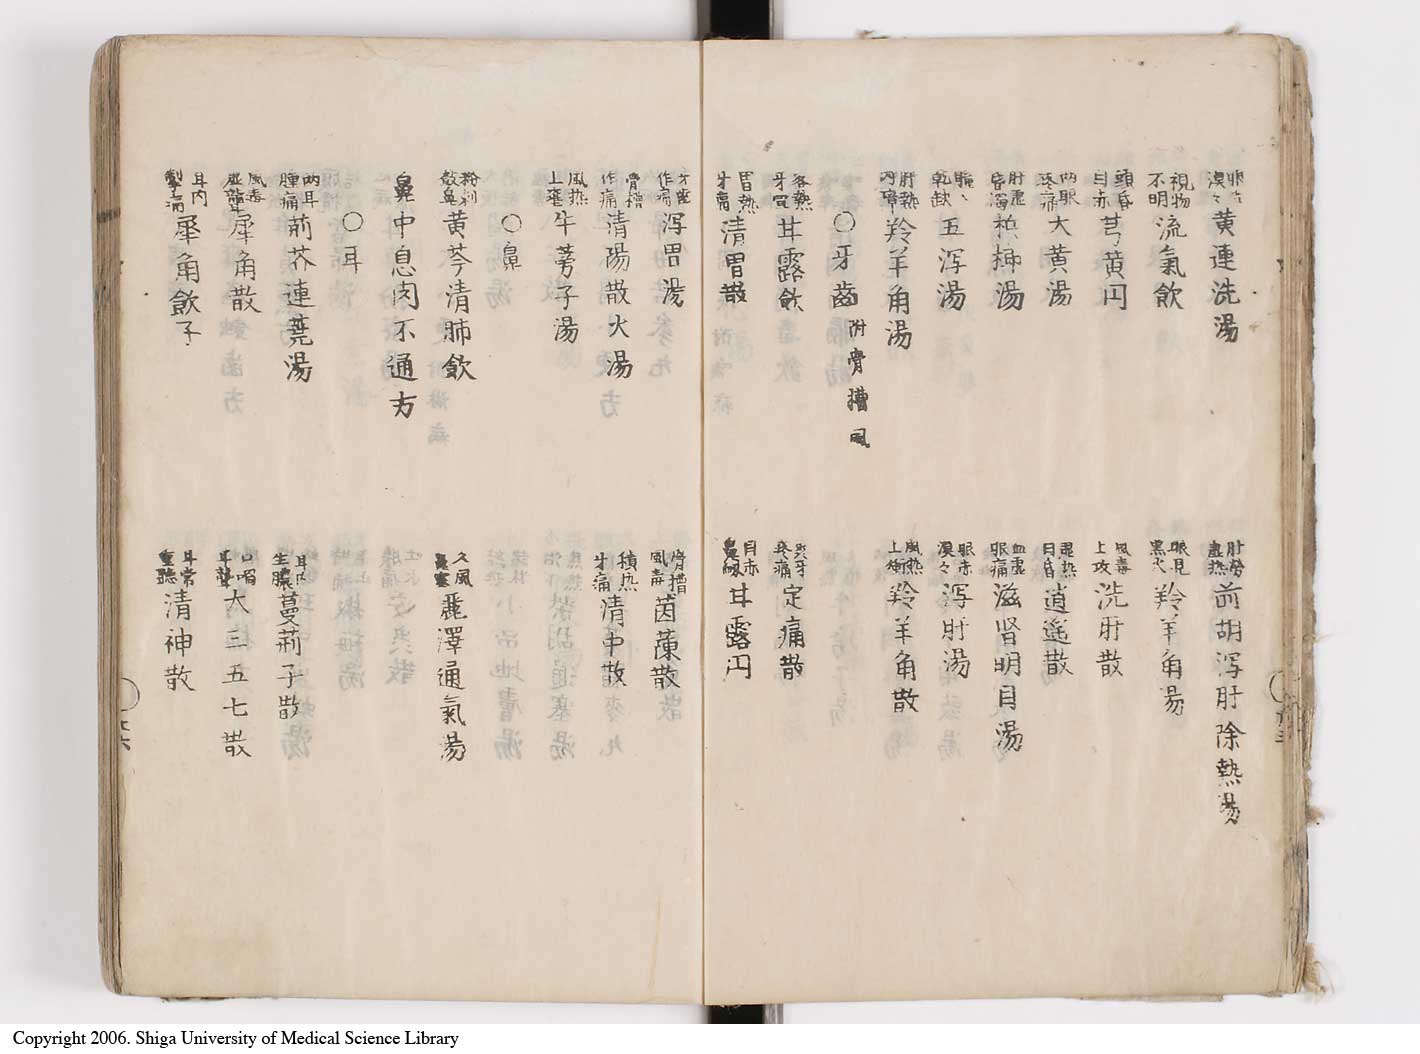 黄連洗湯
視物不明 流氣飲
頭昏目赤 芎黄円
両眼疼痛 大黄湯
肝虚昏濁 湯
乾 五泻湯
肝熱 羚羊角湯
○牙齒 附骨槽風
各熱牙 甘露飲
胃熱牙 清胃散
肝労虚熱 前胡泻肝除熱湯
眼見黒 羚羊角湯
風毒上攻 洗肝散
目昏 逍遥散
血虚眼痛 滋腎明目湯
眼赤 泻肝湯
風熱上 羚羊角散
牙疼痛 定痛散
目赤鼻 甘露円
牙 泻胃湯
骨槽作痛 清陽散火湯
風热上壅 牛蒡子湯
○鼻
鼻 黄芩清肺飲
鼻中息肉不通方
○耳
両耳腫痛 荊芥連莞湯
風毒 犀角散
耳内掣痛 犀角飲子
骨槽風毒 茵蔯散
積热牙痛 清中散
久風鼻塞 麗澤通氣湯
耳内生膿 蔓荊子散
口喎耳聾 大三五七散
耳常重聽 清神散
Copyright 2006. Shiga University of Medical Science Library